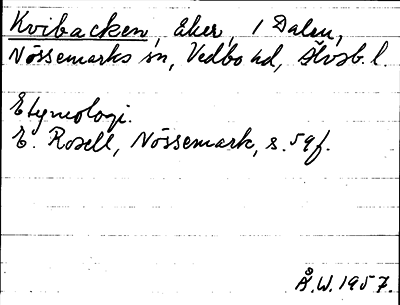 Kvibacken, åker, 1 Dalen,
Nössemarks sn, Vedbo hd, Älvsb. l.
Etymologi.
E. Rosell, Nössemark, s. 59 f.
Å.W. 1957.